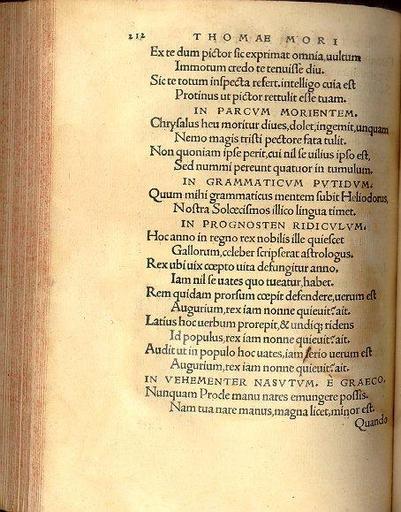 212 THOMAE MORI
Ex te dum pictor sic exprimat omnia, uultum
Immotum credo te tenuisse diu.
Sic te totum inspecta refert, intelligo cuia est
Protinus ut pictor rettulit esse tuam.
IN PARCVM MORIENTEM.
Chrysalus heu moritur diues, dolet, ingemit, unquam
Nemo magis tristi pectore fata tulit.
Non quoniam ipse perit, cui nil se uilius ipso est,
Sed nummi pereunt quatuor in tumulum.
IN GRAMMATICVM PVTIDVM.
Quum mihi grammaticus mentem subit Heliodorus,
Nostra Solœcismos illico lingua timet.
IN PROGNOSTEN RIDICVLVM.
Hoc anno in regno rex nobilis ille quiescet
Gallorum, celeber scripserat astrologus.
Rex ubi uix cœpto uita defungitur anno,
Iam nil se uates quo tueatur, habet.
Rem quidam prorsum cœpit defendere, uerum est
Augurium, rex iam nonne quieuit? ait.
Latius hoc uerbum prorepit, & undiq; ridens
Id populus, rex iam nonne quieuit? ait.
Audit ut in populo hoc uates, iam serio uerum est
Augurium, rex iam nonne quieuit? ait.
IN VEHEMENTER NASVTVM. È GRAECO.
Nunquam Procle manu nares emungere possis.
Nam tua nare manus, magna licet, minor est.
Quando